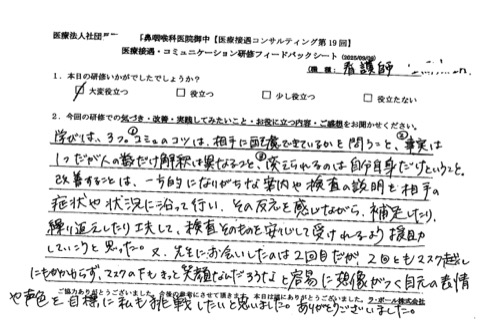 医療法人社団 鼻咽喉科医院御中【医療接遇コンサルティング第19回】
医療接遇・コミュニケーション研修フィードバックシート (2025/09/08)
（職種： 看護師
1．本日の研修いかがでしたでしょうか？
☑ 大変役立つ □ 役立つ □ 少し役立つ □ 役立たない
2．今回の研修での気づき・改善・実践してみたいこと・お役に立つ内容・ご感想をお聞かせください。
学びは、3つ。①コミュのコツは、相手に配慮できているかを問うこと、②事実は
1つだが人の数だけ解釈は異なること、③変えられるのは自分自身だけということ。
改善することは、一方的になりがちな案内や検査の説明を相手の
症状や状況に沿って行い、その反応を感じながら、補足したり、
繰り返したり工夫して、検査そのものを安心して受けれるよう援助
していこうと思った。又、先生にお会いしたのは2回目だが、2回ともマスク越し
にもかかわらず、マスクの下もきっと笑顔なんだろうなと容易に想像がつく目元の表情
や声色を目標に私も挑戦したいと思いました。ありがとうございました。
ご協力ありがとうございました。今後の参考にさせて頂きます。本日は誠にありがとうございました。ラ・ポール株式会社